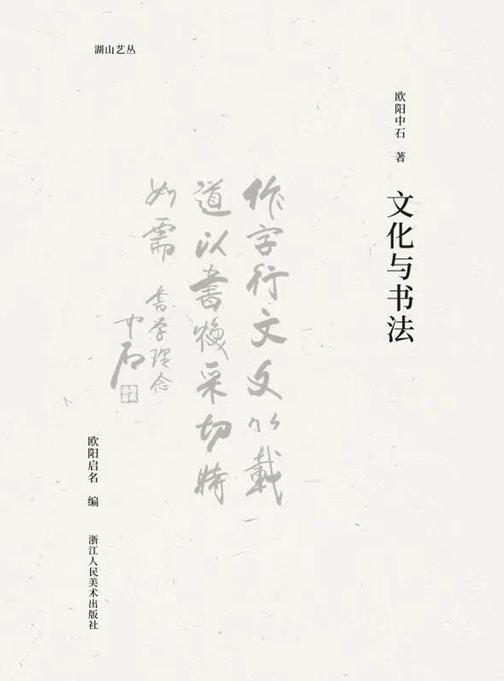 湖山艺丛
欧阳中石 著
文化与书法
作字行文文以載
道以書焕采切時
如需 書學理念
中石
欧阳启名 编
浙江人民美术出版社